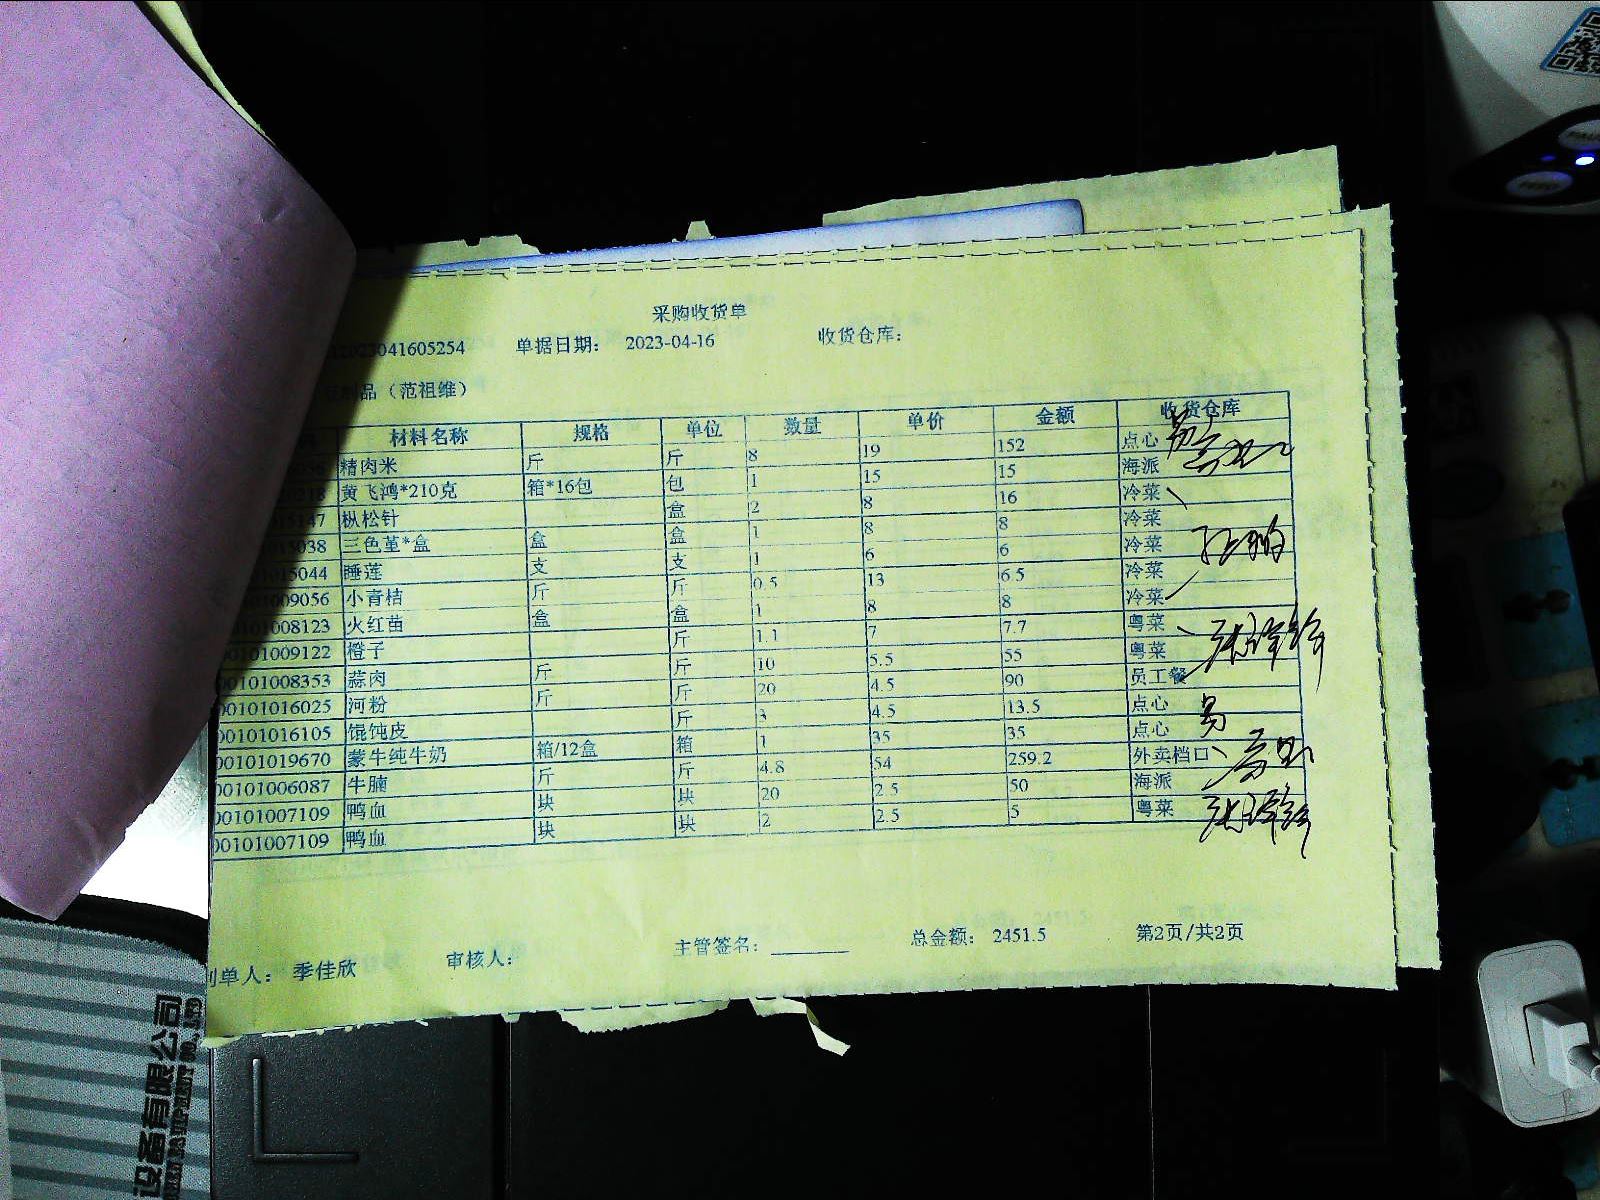 采购收货单
2023041605254 单据日期： 2023-04-16 收货仓库：
制品（范祖维）
材料名称 规格 单位 数量 单价 金额 收货仓库
精肉米 斤 斤 8 19 152 点心
黄飞鸿*210克 箱*16包 包 1 15 15 海派
枞松针 盒 2 8 16 冷菜
5038 三色堇*盒 盒 盒 1 8 8 冷菜
01015044 睡莲 支 支 1 6 6 冷菜
01009056 小青桔 斤 斤 0.5 13 6.5 冷菜
0101008123 火红苗 盒 盒 1 8 8 冷菜
00101009122 橙子 斤 1.1 7 7.7 粤菜
00101008353 蒜肉 斤 斤 10 5.5 55 粤菜
00101016025 河粉 斤 斤 20 4.5 90 员工餐
00101016105 馄饨皮 斤 3 4.5 13.5 点心
00101019670 蒙牛纯牛奶 箱/12盒 箱 1 35 35 点心
00101006087 牛腩 斤 斤 4.8 54 259.2 外卖档口
00101007109 鸭血 块 块 20 2.5 50 海派
00101007109 鸭血 块 块 2 2.5 5 粤菜
制单人： 季佳欣 审核人： 主管签名： 总金额： 2451.5 第2页/共2页
设备有限公司